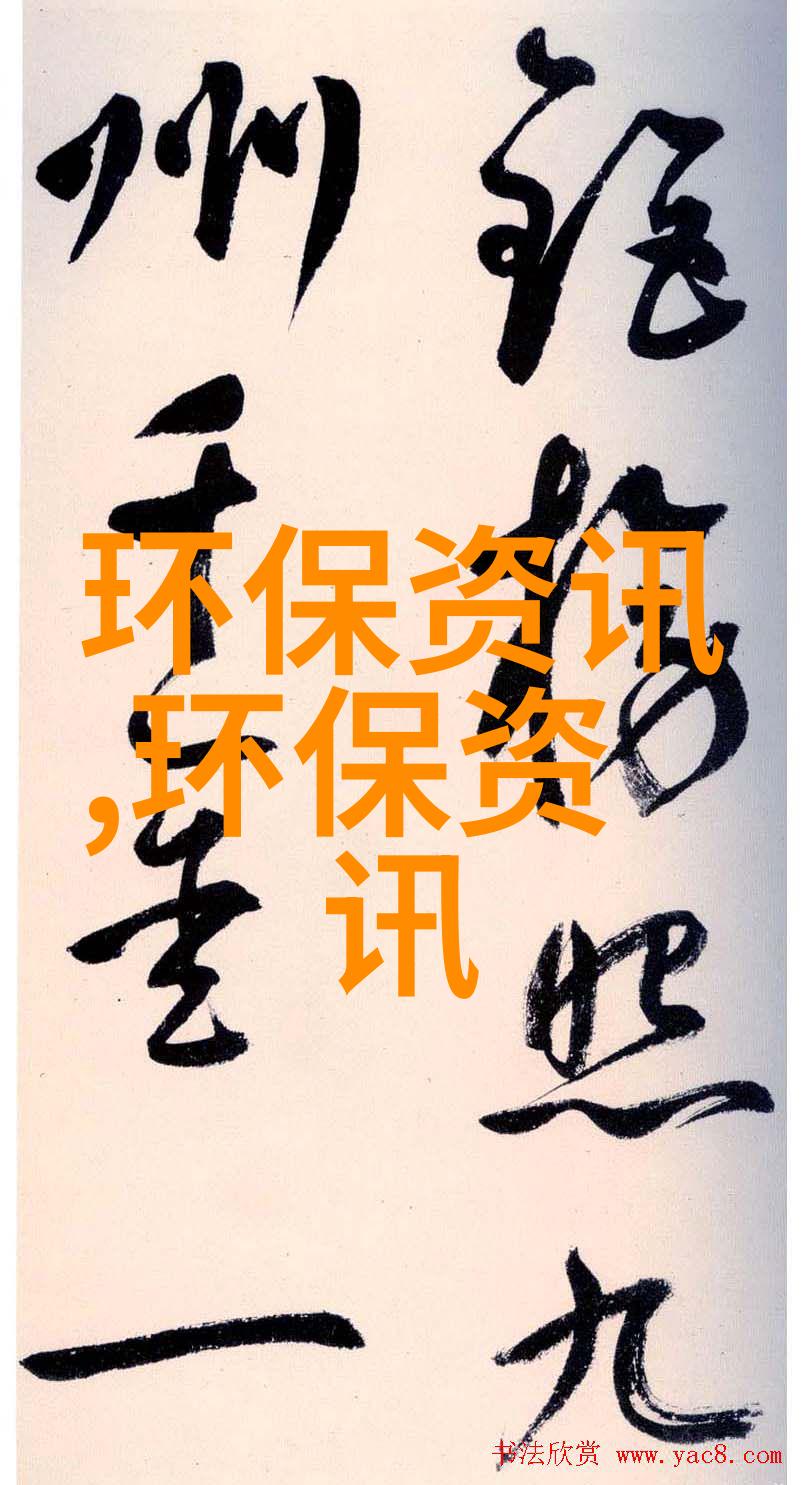 环保资讯
,环保资
讯
照九
州千一
书法欣赏 www.yac8.com